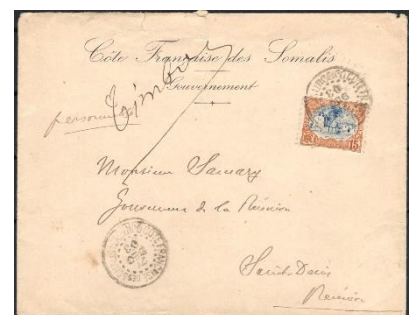 Côte Française des Somalis
Gouvernement
Timbre
personnel
15
Monsieur Samary
Gouverneur de la Réunion
Saint-Denis
Réunion